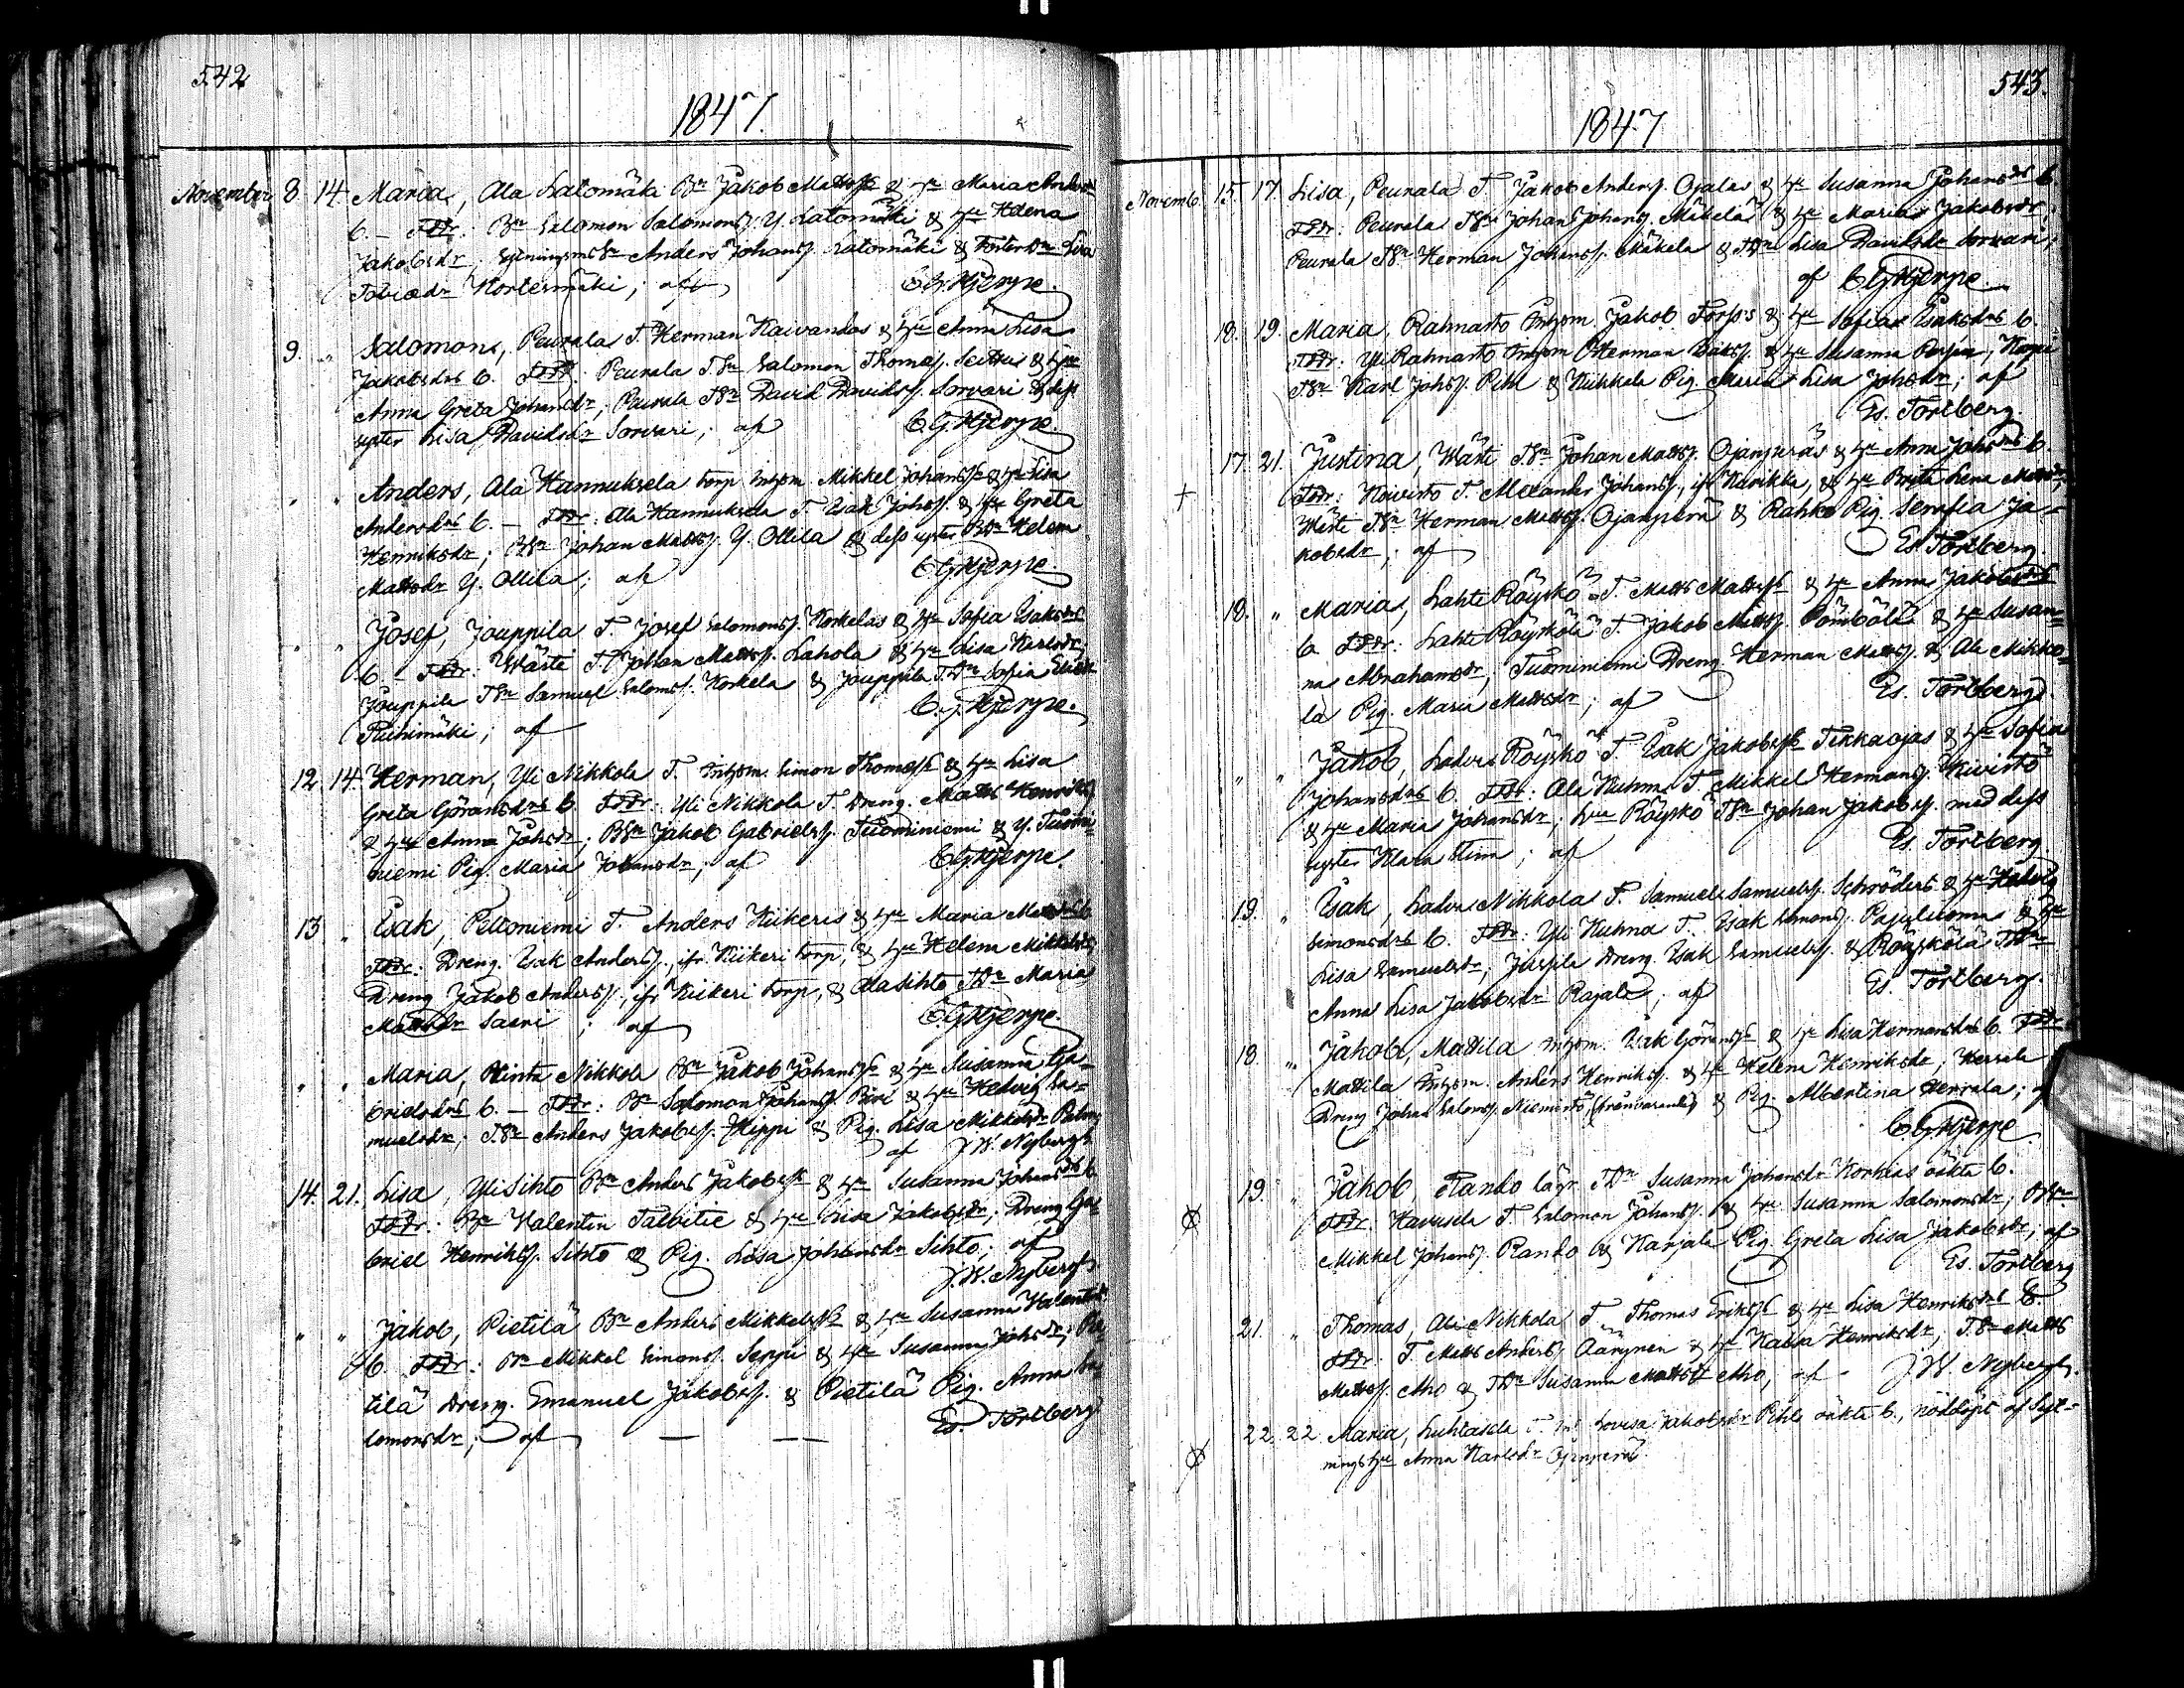 542
1847.
November 8. 14. Maria, Ala Latomäki Bn Jakob Mattss. & hu Maria Anders-
b. - Fddr: Bn Salomon Salomonss. Y. Latomäki & hu Helena
Jakobsdr. Sytningsm Sn Anders Johanss. Latomäki & Foster Dn Lisa
Tobiædr Kortesmäki; af C.G. Hjerpe.
9. " Salomon, Peurala T. Herman Kaivandos & hu Anna Lisa
Jakobsdrs b. Fddr: Peurala T. Sn Salomon Thomass. & hu
Anna Greta Johansdr, Peurala TSn David Davidss. Sorvari & dess
syster Lisa Davidsdr Sorvari; af C.G. Hjerpe.
" " Anders, Ala Hannuksela torp Inhysm. Mikkel Johanss. & hu Lisa
Andersdrs b. - Fddr: Ala Hannuksela T. Isak Johss. & hu Greta
Henriksdr; BSn Johan Mattss. Y. Ollila & dess syster BDn Helena
Mattsdr Y. Ollila; af C.G. Hjerpe.
" " Josef, Jouppila T. Josef Salomonss. Korkelas & hu Sofia Isaksdrs
b. - Fddr: Wästi T. Johan Mattss. Lahola & hu Lisa Karlsdr,
Jouppila TSn Samuel Saloms. Korkela & Jouppila T.Dn Sofia
Puhimäki; af C.G. Hjerpe.
12. 14. Herman, Yli Nikkola T. Inhysm. Simon Thomass. & hu Lisa
Greta Göransdrs b. Fddr: Yli Nikkola T. Dreng. Matts Henriks.
& hu Anna Johsdr; BSn Jakob Gabrielss. Tuominiemi & Y. Tuomi-
niemi Pig. Maria Johansdr; af C.G. Hjerpe.
13. " Isak, Peltoniemi T. Anders Kiikeris & hu Maria Mattsdrs b.
Fddr: Dreng. Isak Anderss., ifr. Kiikeri torp, & hu Helena Mikkelsdr,
Dreng Jakob Anderss., ifr Kiikeri torp, & Ala Sihto TDn Maria
Mattsdr Saari; af C.G. Hjerpe.
" " Maria, Rinta Nikkola Bn Jakob Johanss. & hu Susanna Ga-
brielsdrs b. - Fddr: Bn Salomon Johanss. & hu Hedvig Sa-
muelsdr; TSn Anders Jakobss. Hippi & Pig. Lisa Mikkelsdr
af J.W. Nybergh.
14. 21. Lisa, Yli Sihto Bn Anders Jakobss. & hu Susanna Johansdrs b.
Fddr: Bn Valentin Talvitie & hu Lisa Jakobsdr; Dreng Ga-
briel Henrikss. Sihto & Pig. Lisa Johansdr Sihto; af
J.W. Nybergh.
" " Jakob, Pietilä Bn Anders Mikkelss. & hu Susanna Valentins-
b. Fddr: Bn Mikkel Simonss. Seppi & hu Susanna Johsdr; Pie-
tilä Dreng. Emanuel Jakobss. & Pietilä Pig. Anna Sa-
lomonsdr; af Es. Forlberg.
543.
1847
Novemb. 15. 17. Lisa, Peurala T. Jakob Anderss. Ojalas & hu Susanna Johansdrs b
Fddr: Peurala TSn Johan Johanss. Mäkelä & hu Maria Jakobsdr;
Peurala TSn Herman Johanss. Mäkela & TDn Lisa Davidsdr Sorvari;
af C.G. Hjerpe.
18. 19. Maria, Rahnasto Inhysm. Jakob Forss's & hu Sofia Isaksdrs b.
Fddr: Yli Rahnasto Inhysm Herman & hu Susanna
TSn Karl Johss. Pihl & Kuikkela Pig. Maria Lisa Johsdr; af
Es. Forlberg.
17. 21. Justina, Wästi TSn Johan Mattss. Ojanperäs & hu Anna Johsdrs b.
+ Fddr: Koivisto T. Alexander Johanss., ifr Karikka, & hu Brita Lena Mattsdr;
Wästi TSn Herman Mattss. Ojanperä & Rahko Pig. Serafia Ja-
kobsdr; af Es. Forlberg.
18. " Maria, Lahti Röyskö T. Matts Mattss. & hu Anna Jakobsdrs
b. Fddr: Lahti Röyskölä T. Jakob Mattss. Pömbölä & hu Susan-
na Abrahamsdr; Tuominiemi Dreng. Herman Mattss. & Ala Mikko-
la Pig. Maria Mattsdr; af Es. Forlberg.
" " Jakob, Röyskö T. Isak Jakobss. Tikkaojas & hu Sofia
Johansdrs b. Fddr: Ala Kuhna T. Mikkel Hermanss. Kivistö
& hu Maria Johansdr; Röyskö TSn Johan Jakobss. med dess
syster Klara Stina; af Es. Forlberg.
19. " Isak, Nikkola T. Samuel Samuelss. Schröders & hu Hedvig
Simonsdrs b. Fddr: Yli Kuhna T. Isak Simonss. Pajuluoma & hu
Lisa Samuelsdr; Juspila Dreng. Isak Samuelss. & Röyskölä TDn
Anna Lisa Jakobsdr Rajala; af Es. Forlberg.
18. " Jakob, Mattila Inhysm. Isak Göranss. & hu Lisa Hermansdrs b. Fddr
Mattila Inhysm. Anders Henrikss. & hu Helena Henriksdr; Herrala
Dreng Johan Saloms. Niemistö (frånvarande) & Pig. Albertina Herrala; af
C.G. Hjerpe.
19. " Jakob, Rando lägr TDn Susanna Johansdr Korhias oäkta b.
Fddr: Havusela T. Salomon Johanss. & hu Susanna Salomonsdr; BSn
Mikkel Johanss. Rando & Karjala Pig. Greta Lisa Jakobsdr; af
Es. Forlberg
21. " Thomas, Ala Nikkola T. Thomas Erikss. & hu Lisa Henriksdrs b.
Fddr: T. Matts Anderss. Äärynen & hu Kaisa Henriksdr; T.Sn Matts
Mattss. Aho & TDn Susanna Mattsdr Aho; af J.W. Nybergh.
22. 22. Maria, Luhtasela T. Lovisa Jakobsdr Pihls oäkta b., nöddöpt af Syt-
nings hu Anna Karlsdr Ojanperä